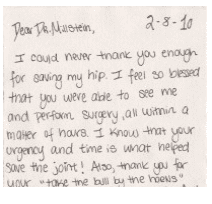 Dear Dr. Millstein, 2-8-10
I could never thank you enough
for saving my hip. I feel so blessed
that you were able to see me
and perform surgery, all within a
matter of hours. I know that your
urgency and time is what helped
save the joint! Also, thank you for
your "take the bull by the horns"